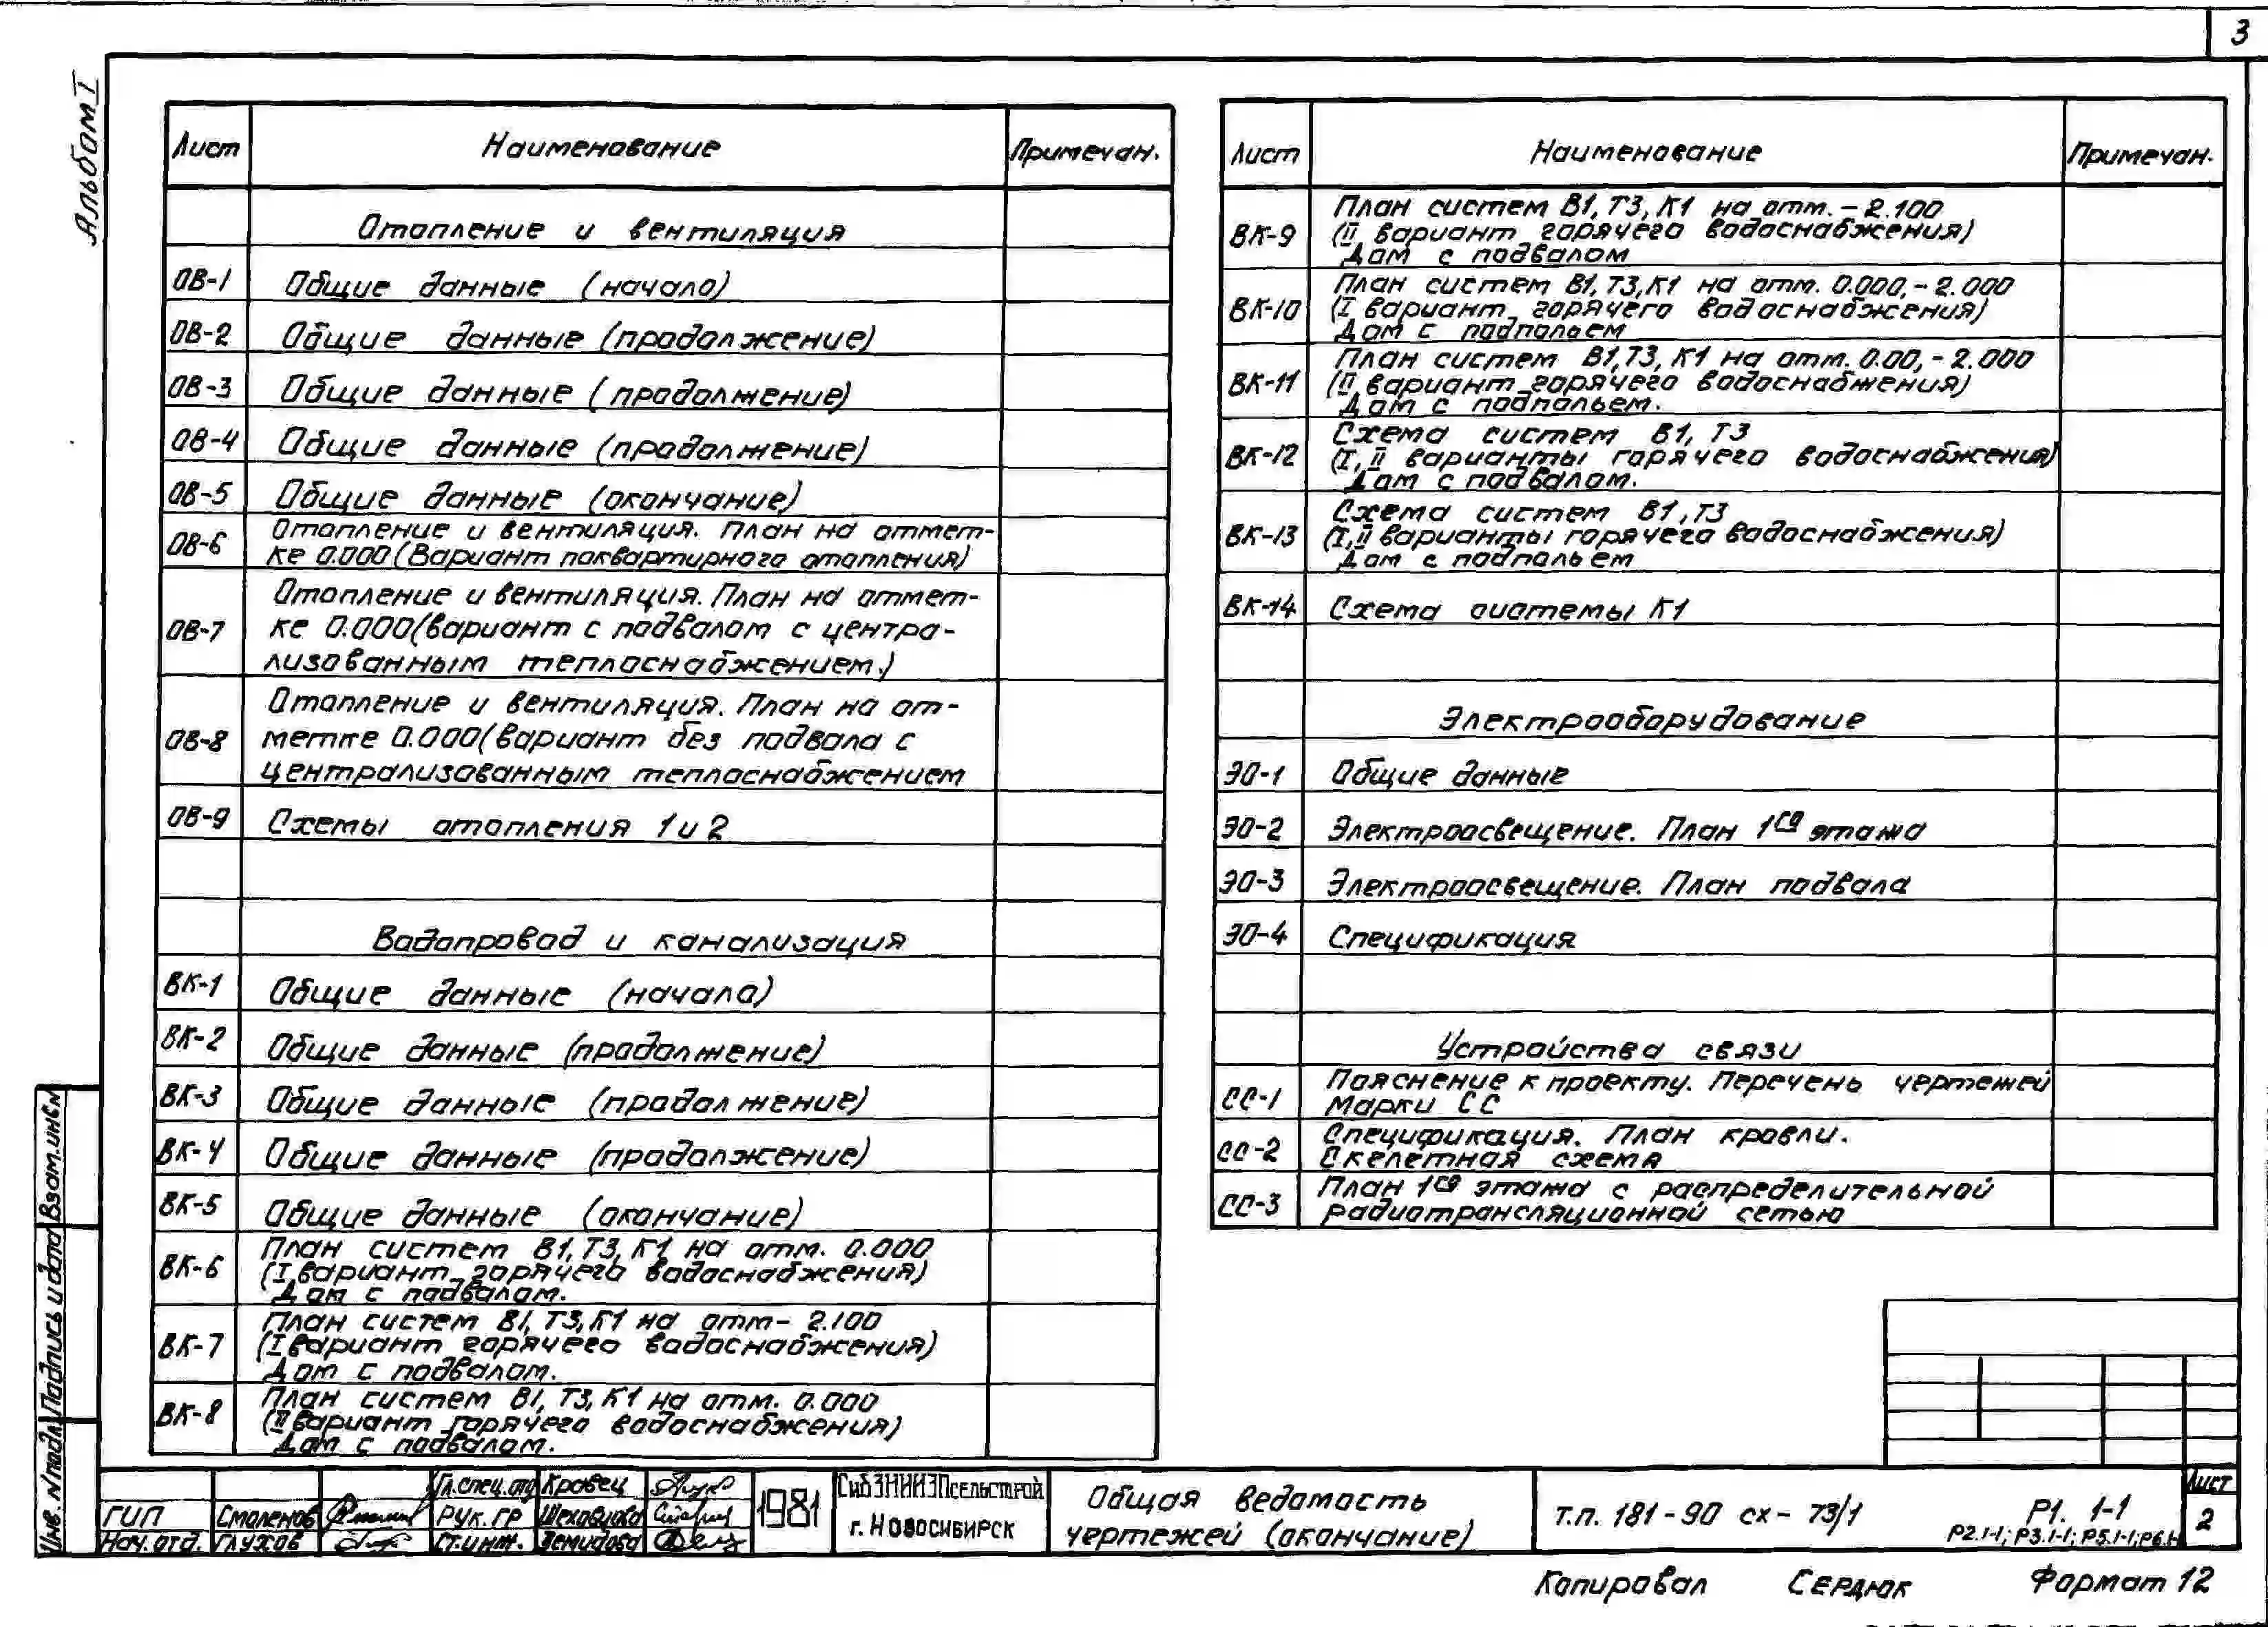 3
Альбом I
Лист Наименование Примечан.
Отопление и вентиляция
ОВ-1 Общие данные (начало)
ОВ-2 Общие данные (продолжение)
ОВ-3 Общие данные (продолжение)
ОВ-4 Общие данные (продолжение)
ОВ-5 Общие данные (окончание)
ОВ-6 Отопление и вентиляция. План на отмет-
ке 0.000 (Вариант поквартирного отопления)
ОВ-7 Отопление и вентиляция. План на отмет-
ке 0.000 (вариант с подвалом с центра-
лизованным теплоснабжением.)
ОВ-8 Отопление и вентиляция. План на от-
метке 0.000 (вариант без подвала с
централизованным теплоснабжением
ОВ-9 Схемы отопления 1 и 2
Водопровод и канализация
ВК-1 Общие данные (начало)
ВК-2 Общие данные (продолжение)
ВК-3 Общие данные (продолжение)
ВК-4 Общие данные (продолжение)
ВК-5 Общие данные (окончание)
ВК-6 План систем В1, Т3, К1 на отм. 0.000
(I вариант горячего водоснабжения)
Дом с подвалом.
ВК-7 План систем В1, Т3, К1 на отм - 2.100
(I вариант горячего водоснабжения)
Дом с подвалом.
ВК-8 План систем В1, Т3, К1 на отм. 0.000
(II вариант горячего водоснабжения)
Дом с подвалом.
Лист Наименование Примечан.
ВК-9 План систем В1, Т3, К1 на отм. - 2.100
(II вариант горячего водоснабжения)
Дом с подвалом
ВК-10 План систем В1, Т3, К1 на отм. 0.000, - 2.000
(I вариант горячего водоснабжения)
Дом с подпольем
ВК-11 План систем В1, Т3, К1 на отм. 0.00, - 2.000
(II вариант горячего водоснабжения)
Дом с подпольем.
ВК-12 Схема систем В1, Т3
(I, II варианты горячего водоснабжения)
Дом с подвалом.
ВК-13 Схема систем В1, Т3
(I, II варианты горячего водоснабжения)
Дом с подпольем
ВК-14 Схема системы К1
Электрооборудование
ЭО-1 Общие данные
ЭО-2 Электроосвещение. План 1го этажа
ЭО-3 Электроосвещение. План подвала
ЭО-4 Спецификация
Устройства связи
СС-1 Пояснение к проекту. Перечень чертежей
Марки СС
СС-2 Спецификация. План кровли.
Скелетная схема
СС-3 План 1го этажа с распределительной
радиотрансляционной сетью
Взам.инв.N
Подпись и дата
Инв. N подл.
Гл.спец.отд Кравец
ГИП Смоленов Рук.гр Шеховцова
Нач.отд. Глухов Ст.инж. Демидова
1981
СибЗНИИЭПсельстрой
г. Новосибирск
Общая ведомость
чертежей (окончание)
т.п. 181-90 сх- 73/1
Р1. 1-1
Р2.1-1; Р3.1-1; Р5.1-1; Р6.1-1
Лист
2
Копировал Сердюк Формат 12